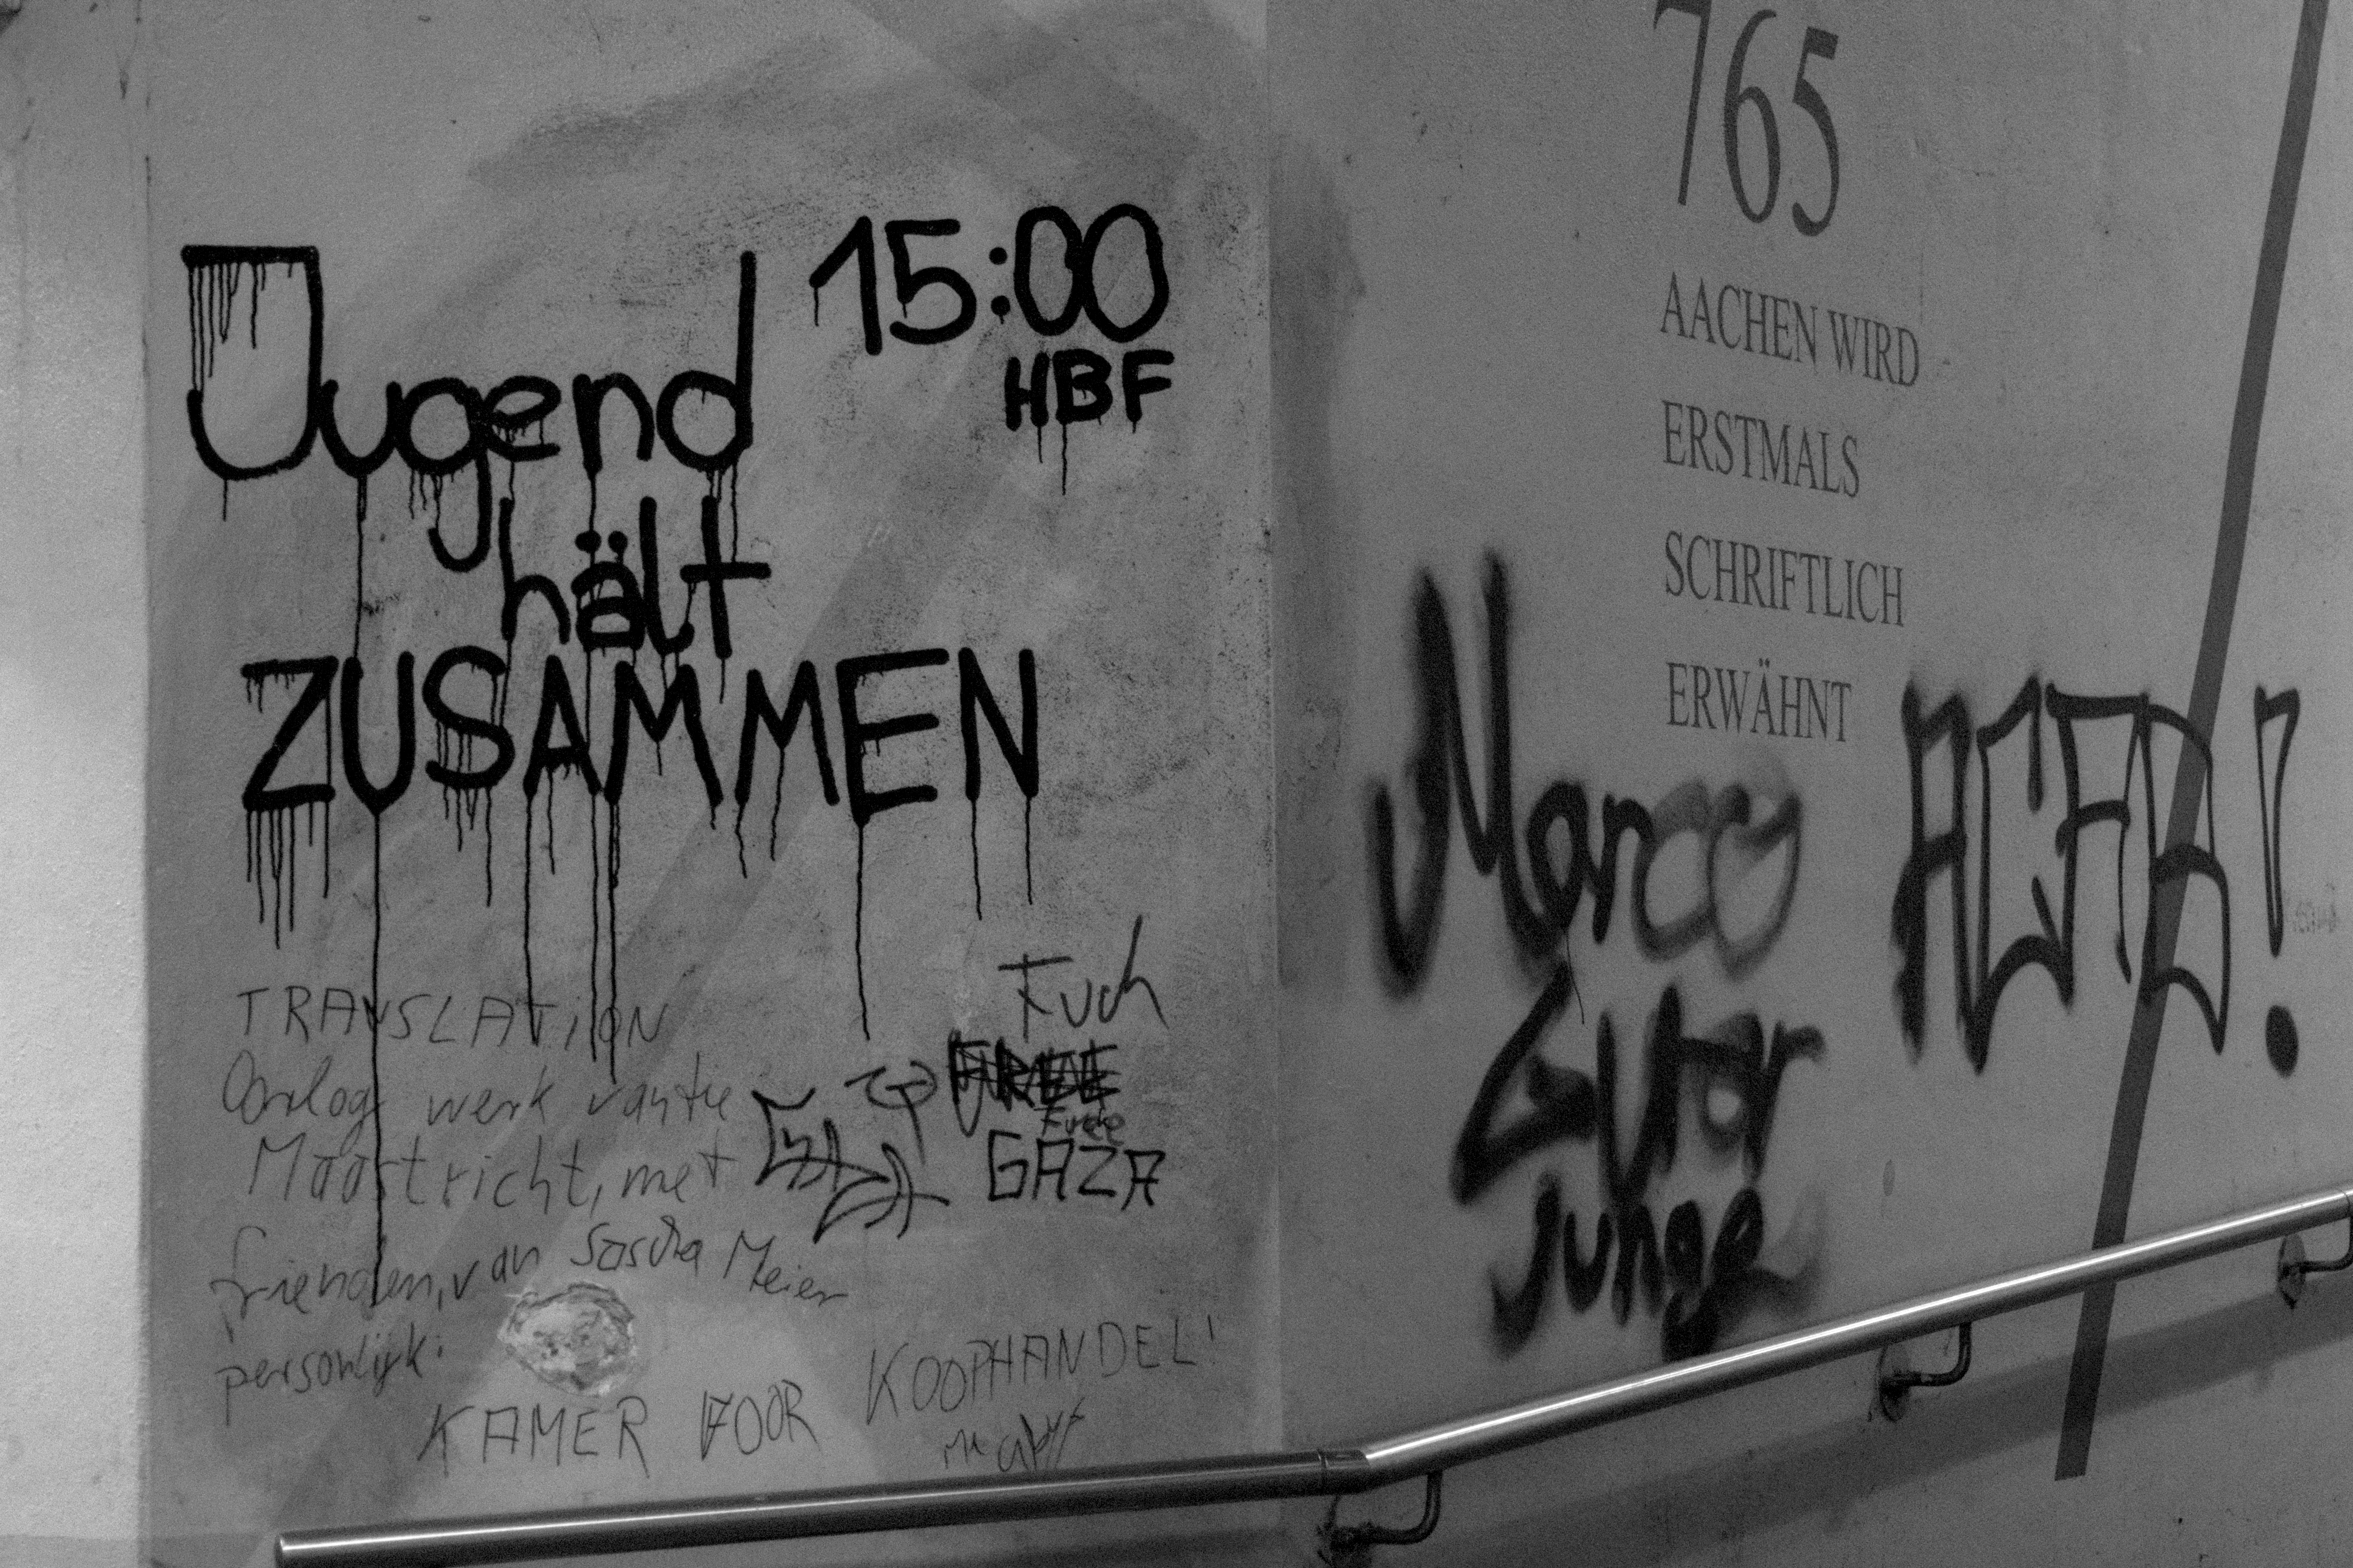 15:00
HBF
Jugend
hält
ZUSAMMEN
TRANSLATION
Oorlog werk
Maastricht, met
frienden, van Sascha Meier
persönlijk:
KAMER VOOR KOOPHANDEL!
Fuck
FREE
GAZA
765
AACHEN WIRD
ERSTMALS
SCHRIFTLICH
ERWÄHNT
Marco
Guter
Junge
ACAB!